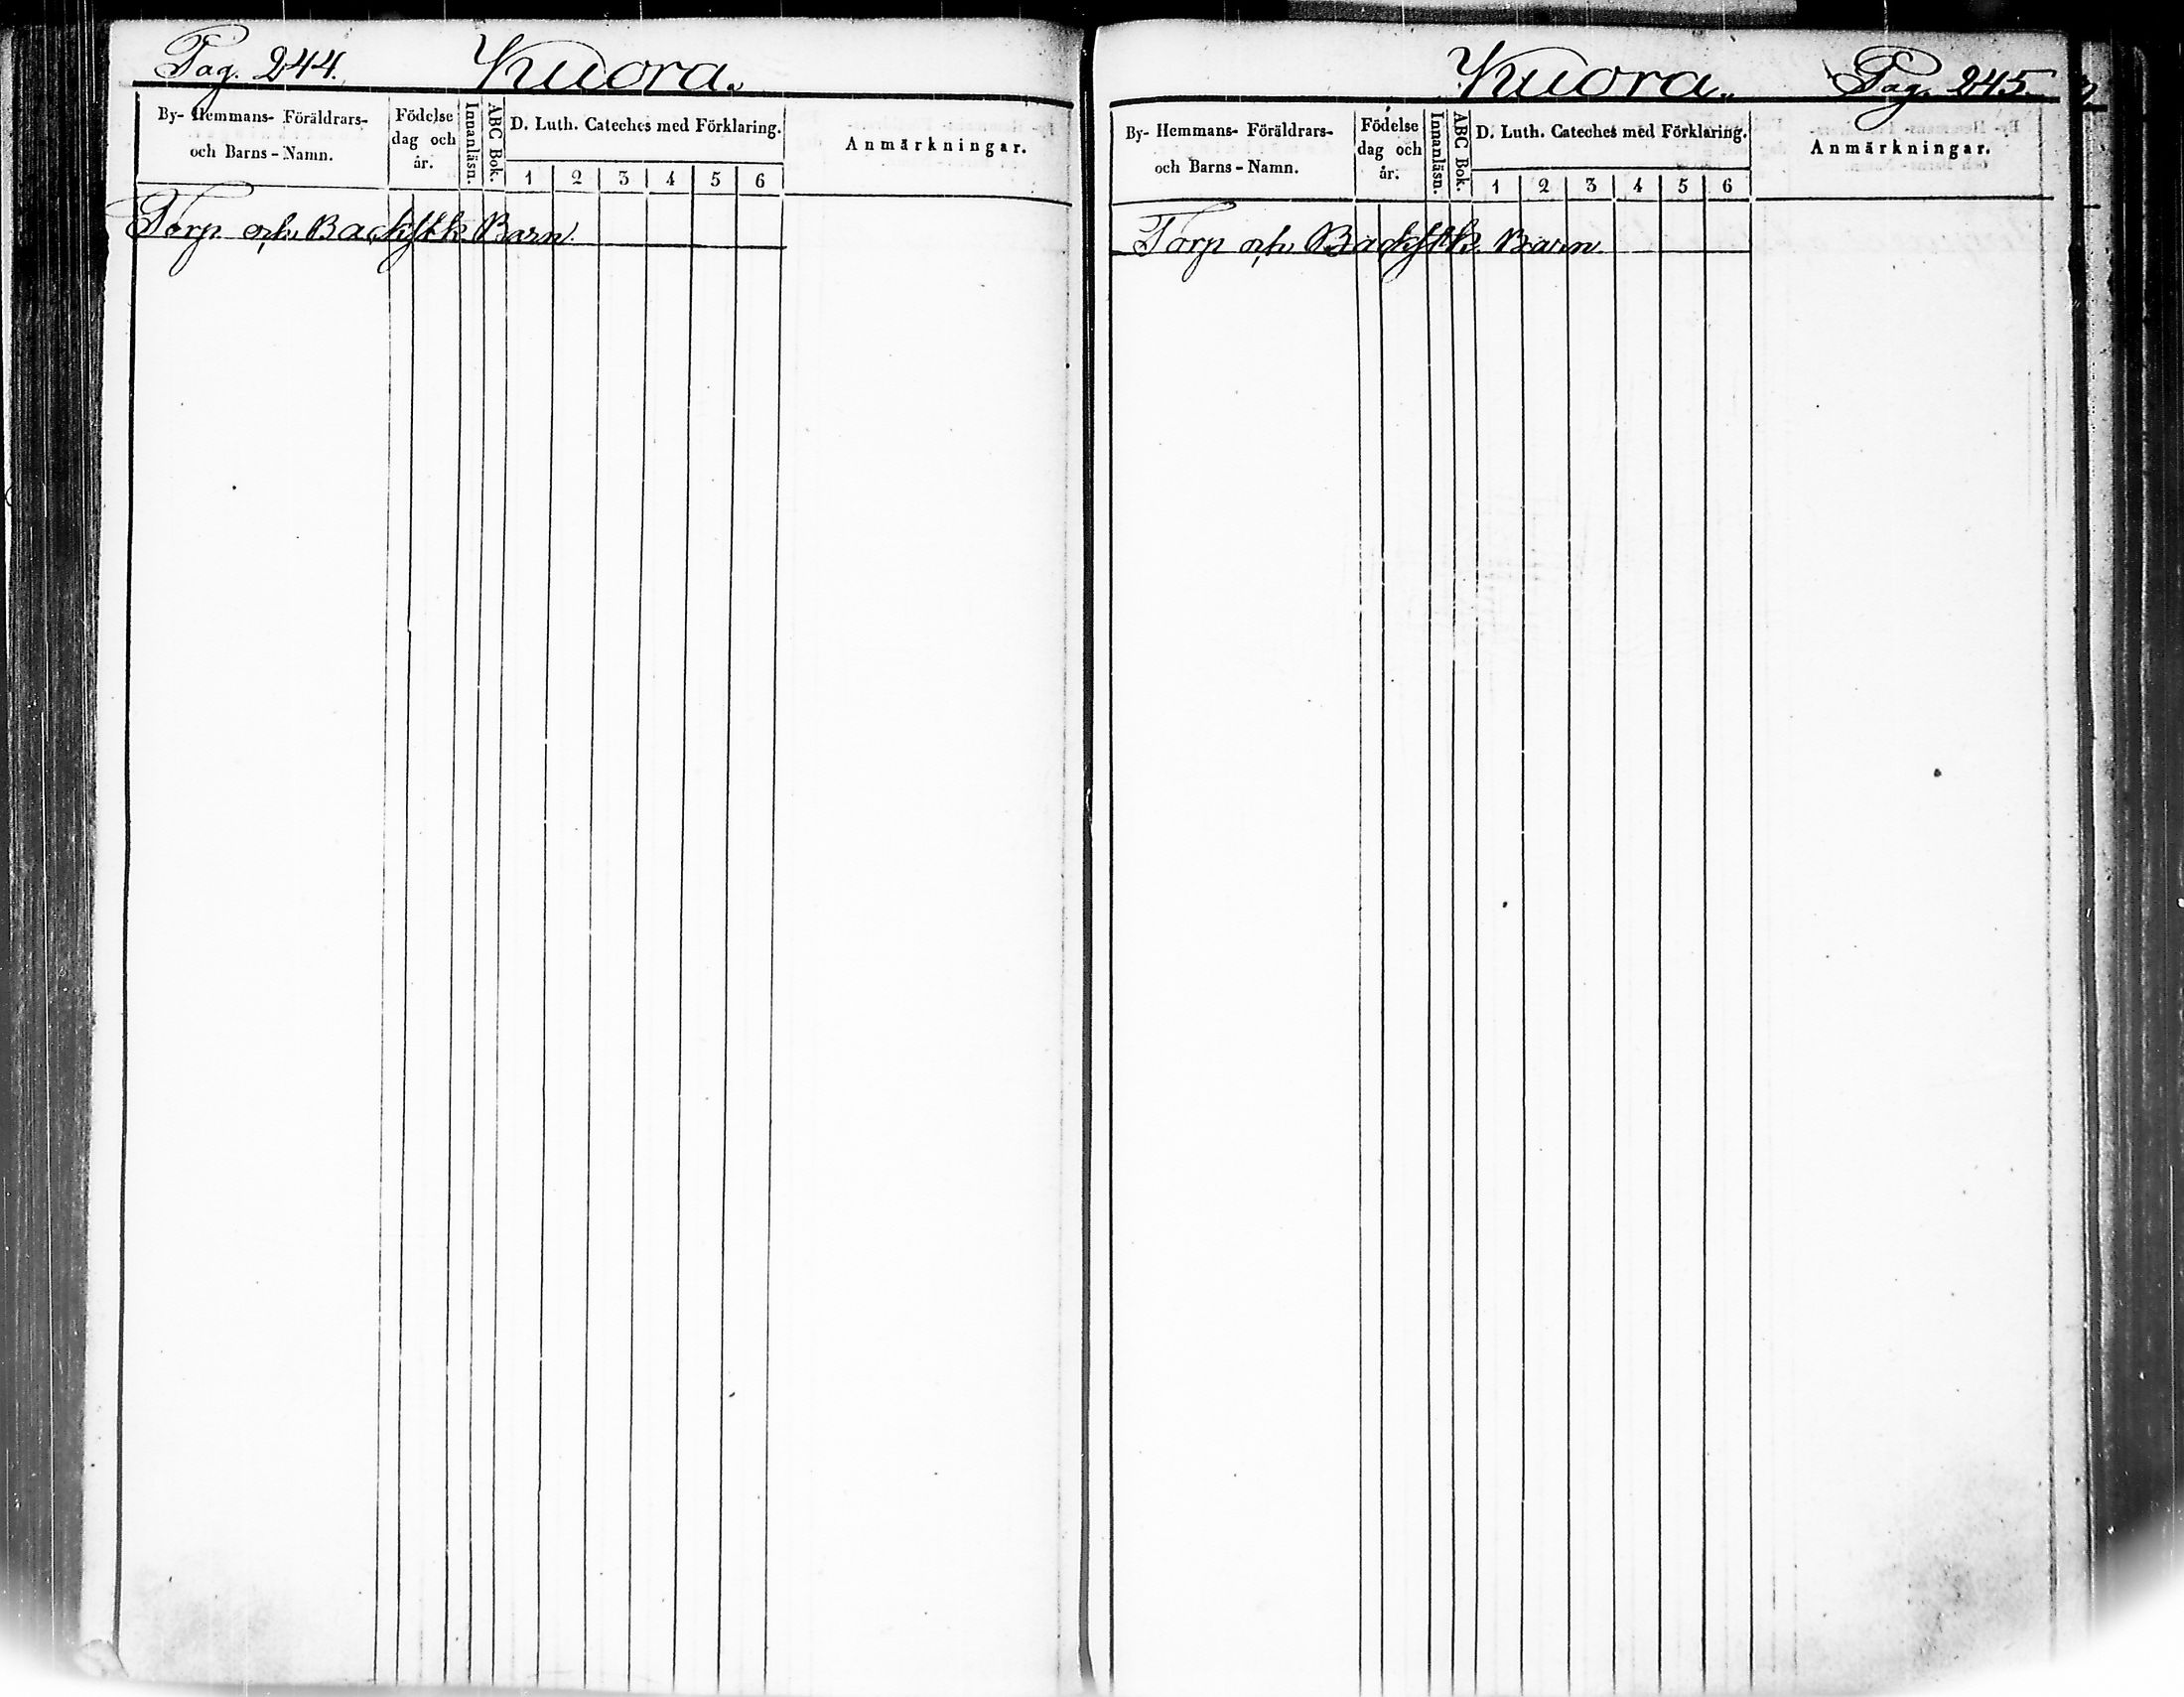 Pag. 244. Kuora.
By- Hemmans- Föräldrars-
och Barns-Namn.
Födelse
dag och
år.
Innanläsn.
ABC Bok.
D. Luth. Cateches med Förklaring.
1 2 3 4 5 6
Anmärkningar.
Torp och Backstk. Barn.
Kuora. Pag. 245.
By- Hemmans- Föräldrars-
och Barns-Namn.
Födelse
dag och
år.
Innanläsn.
ABC Bok.
D. Luth. Cateches med Förklaring.
1 2 3 4 5 6
Anmärkningar.
Torp och Backstk. Barn